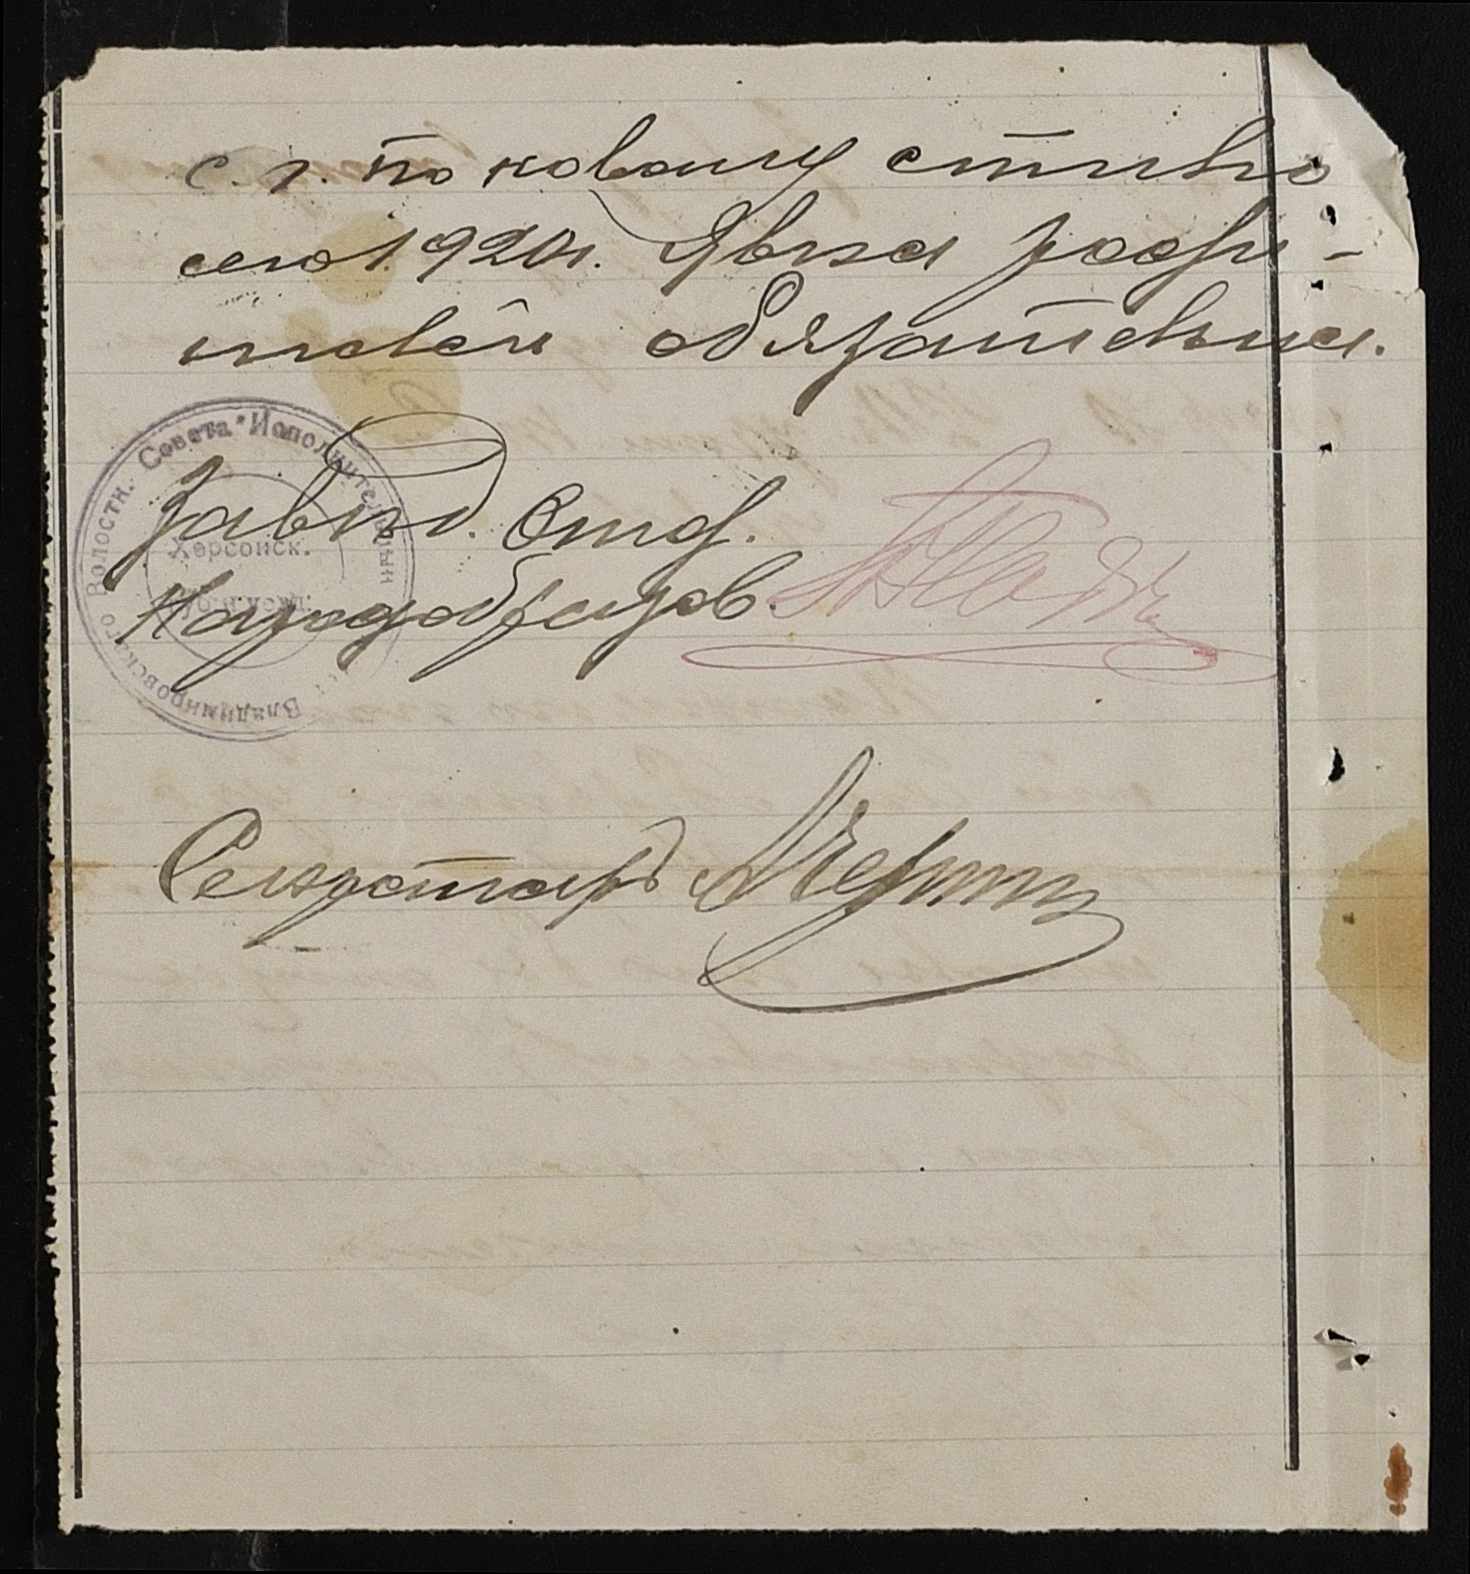 с. г. по новому стилю
сего 1920 г. Явка роди-
телей обязательна.
Завид. Отд.
Народобразов.
Секретарь
Владимировского Волостн. Совета * Исполнительн
Херсонск.